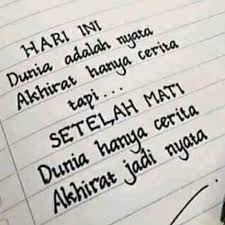 HARI INI
Dunia adalah nyata
Akhirat hanya cerita
tapi...
SETELAH MATI
Dunia hanya cerita
Akhirat jadi nyata